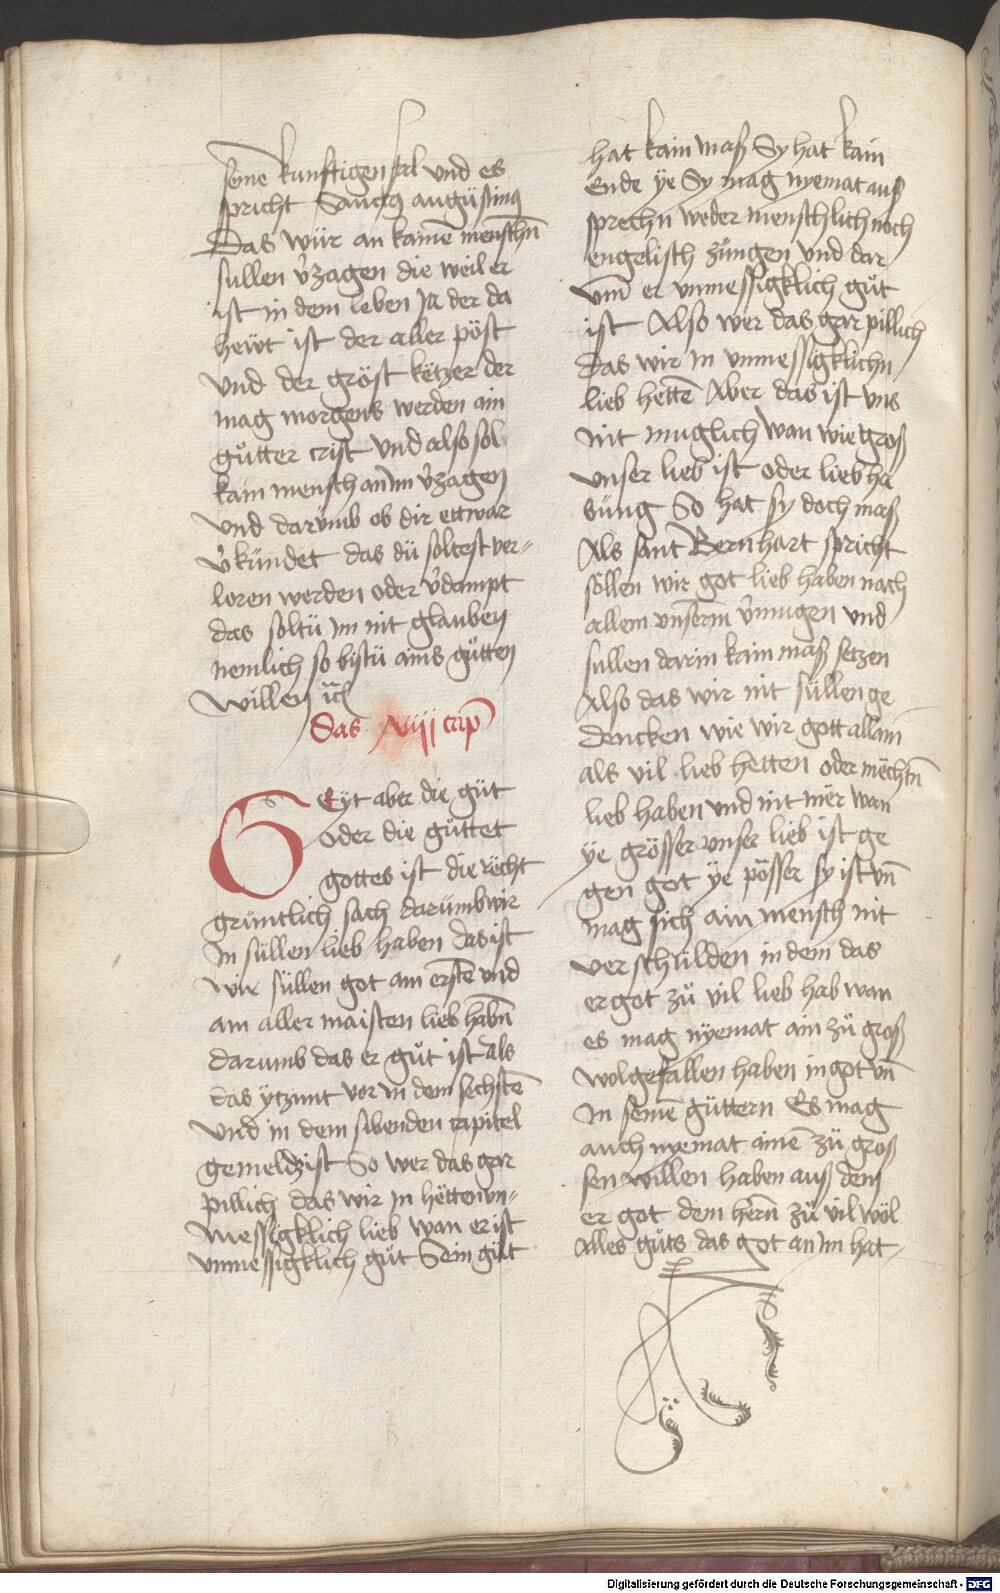 seine kunftigen fal und es
spricht Sanctus augustinus
Das wür an kaine menschn
sullen v̉zagen die weil er
ist in dem leben Ja der da
hewt ist der aller pöst
und der gröst ketzer der
mag morgens werden ain
gůtter crist und also sol
kain mensch an im v̉zagen
und darumb ob dir ettwar
v̉kündet das dü soltest ver-
loren werden oder v̉dampt
das soltü im nit glauben
nemlich so bistü ains gůtten
willen ꝛc
Das xiij cap
SEyt aber die güt
oder die güttet
gottes ist die rëcht
grüntlich sach darumb wir
In süllen lieb haben das ist
wir süllen got am ersten und
am aller maisten lieb habn̄
darumb das er gůt ist als
das ytzunt vor in dem sechsten
und in dem sibenden capitel
gemeldz ist So wer das gar
pillich das wir In hëtten un-
messigklich lieb wan er ist
unmessigklich gůt Sein gůt
hat kain maß Sy hat kain
Ende ÿe Sy mag nyemat auß
sprechn weder menschlich noch
engelisch züngen und dar
um̄ er unmessigklich gůt
ist Also wer das gar pillich
das wir In unmessigklichn
lieb hette Aber das ist uns
nit muglich wan wie groß
unser lieb ist oder lieb ha
bung So hat sy doch maß
Als sant Bernhart spricht
söllen wir got lieb haben nach
allem unserm v̉mugen und
sullen darin kain maß setzen
Also das wir nit süllen ge
dencken wie wir gott allain
als vil lieb hetten oder mëchtn̄
lieb haben und nit mër wan
ÿe grösser unser lieb ist ge
gen got ÿe pösser sy ist un̄
mag sich ain mensch nit
verschulden in dem das
er got zů vil lieb hab wan
es mag nyemat ain zů groß
wolgefallen haben in got un̄
In seine güttern Es mag
auch nyemat aine zů groß
sen willen haben auß dem
er got dem herrn̄ zů vil wöl
Alles güts das got an im hat